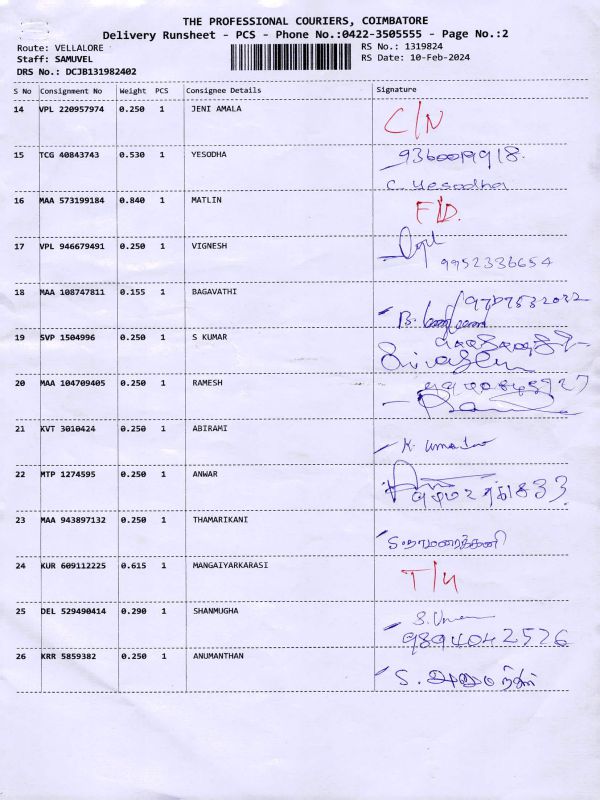 THE PROFESSIONAL COURIERS, COIMBATORE
Delivery Runsheet - PCS - Phone No.:0422-3505555 - Page No.:2
Route: VELLALORE RS No.: 1319824
Staff: SAMUVEL RS Date: 10-Feb-2024
DRS No.: DCJB131982402
S No Consignment No Weight PCS Consignee Details Signature
14 VPL 220957974 0.250 1 JENI AMALA
C/N
15 TCG 40843743 0.530 1 YESODHA
9360019918.
C. Yesodha
16 MAA 573199184 0.840 1 MATLIN
F/D.
17 VPL 946679491 0.250 1 VIGNESH
9952336654
18 MAA 108747811 0.155 1 BAGAVATHI
B.
19 SVP 1504996 0.250 1 S KUMAR
20 MAA 104709405 0.250 1 RAMESH
21 KVT 3010424 0.250 1 ABIRAMI
K.
22 MTP 1274595 0.250 1 ANWAR
23 MAA 943897132 0.250 1 THAMARIKANI
S. தாமரைக்கனி
24 KUR 609112225 0.615 1 MANGAIYARKARASI
25 DEL 529490414 0.290 1 SHANMUGHA
S.
9894042526
26 KRR 5859382 0.250 1 ANUMANTHAN
S.